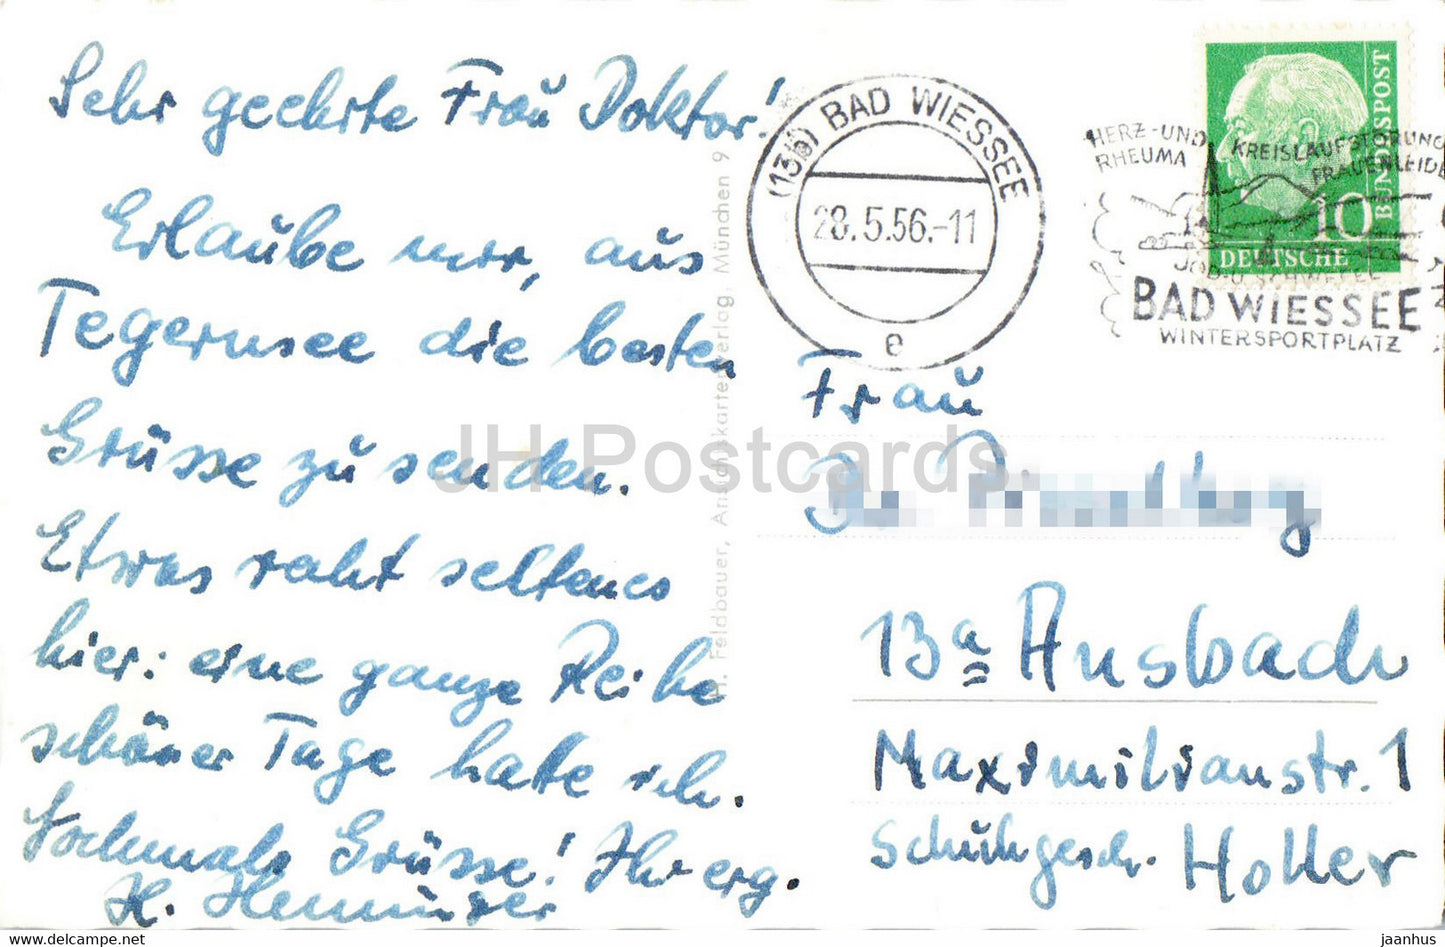 Sehr geehrte Frau Doktor!
Erlaube mir, aus
Tegernsee die besten
Grüsse zu senden.
Etwas raht seltenes
hier: eine ganze Reihe
schöner Tage hatte ich.
Nochmals Grüsse! Ihr erg.
H.
H. Feldbauer, Ansichtskartenverlag, München 9
(13b) BAD WIESSEE
28.5.56.-11
e
HERZ-UND KREISLAUFSTÖRUNG
RHEUMA FRAUENLEIDE
BAD WIESSEE
WINTERSPORTPLATZ
DEUTSCHE
BUNDESPOST
10
Frau
13a Ansbach
Maximilianstr. 1
Schuhgesch. Holler
JH Postcards
www.delcampe.net
jaanhus